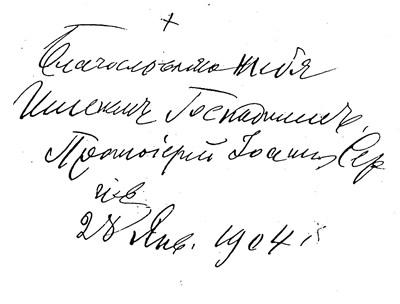 +
Благословляю тебя
Именемъ Господнимъ.
Протоіерей Іоаннъ Сер
гіев
28 Янв. 1904 г.